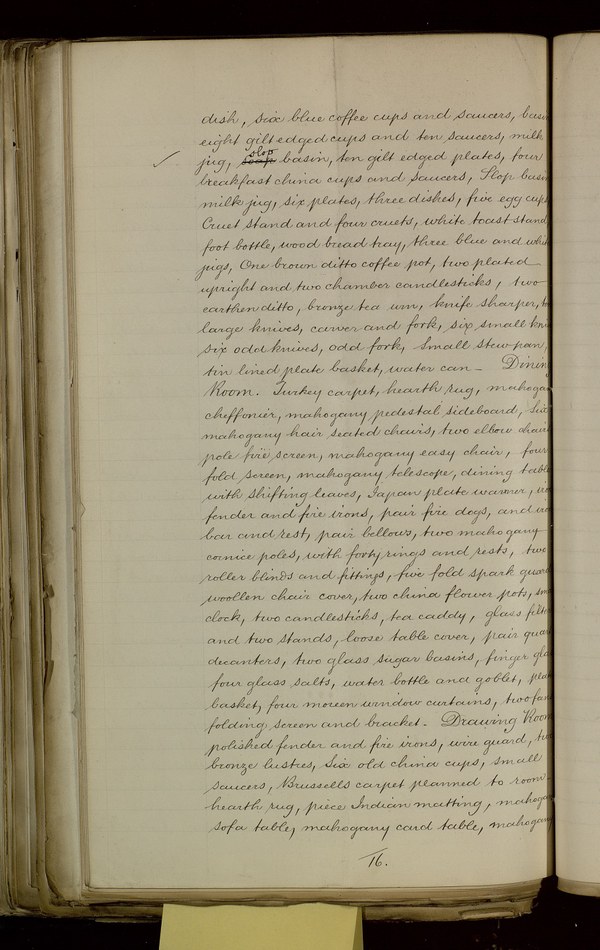 dish, six blue coffee cups and saucers, basin
eight gilt edged cups and ten saucers, milk
slop
jug, soap basin, ten gilt edged plates, four
breakfast china cups and saucers, Slop basin
milk jug, six plates, three dishes, five egg cups
Cruet stand and four cruets, white toast stand
foot bottle, wood bread tray, three blue and whit
jugs, One brown ditto coffee pot, two plated
upright and two chamber candlesticks, two
earthen ditto, bronze tea urn, knife sharper,
large knives, carver and fork, six small kni
six odd knives, odd fork, small stewpan,
tin lined plate basket, water can - Dinin
Room. Turkey carpet, hearth rug, mahoga
cheffonier, mahogany pedestal sideboard, Six
mahogany hair seated chairs, two elbow chair
pole fire screen, mahogany easy chair, four
fold screen, mahogany telescope, dining table
with shifting leaves, Japan plate warmer, iro
fender and fire irons, pair fire dogs, and iro
bar and rest, pair bellows, two mahogany
cornice poles, with forty rings and rests, two
roller blinds and fittings, five fold spark guard
woollen chair cover, two china flower pots, sm
clock, two candlesticks, tea caddy, glass filter
and two stands, loose table cover, pair quar
decanters, two glass sugar basins, finger gla
four glass salts, water bottle and goblet, plat
basket, four moreen window curtains, two fan
folding screen and bracket. - Drawing Room
polished fender and fire irons, wire guard, two
bronze lustres, Six old china cups, small
saucers, Brussells carpet planned to room
hearth rug, piece Indian matting, mahoga
sofa table, mahogany card table, mahogany
16.